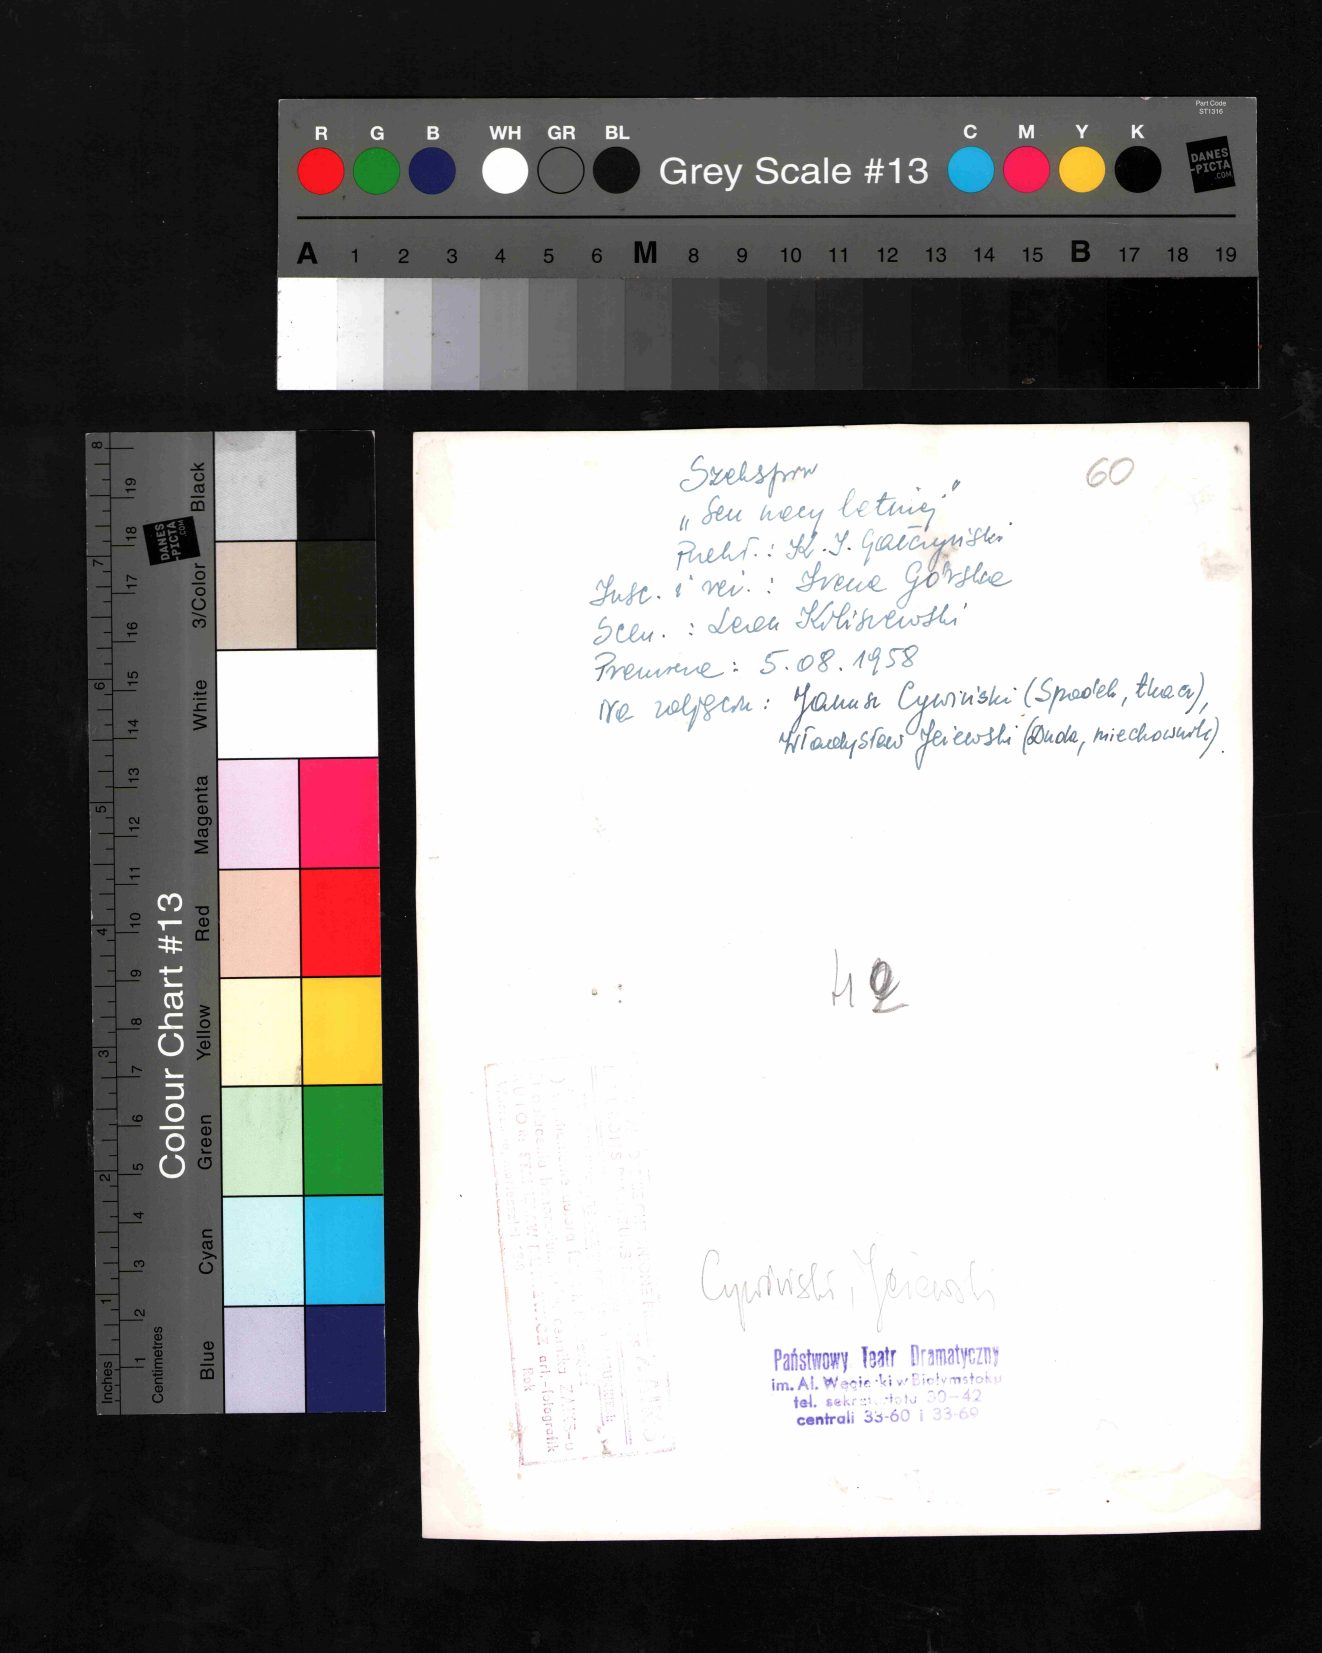 Part Code
ST1316
R G B WH GR BL Grey Scale #13 C M Y K
DANES
-PICTA
.COM
A 1 2 3 4 5 6 M 8 9 10 11 12 13 14 15 B 17 18 19
Colour Chart #13
Inches 1 2 3 4 5 6 7 8
Centimetres 1 2 3 4 5 6 7 8 9 10 11 12 13 14 15 16 17 18 19
DANES
-PICTA
.COM
Black
3/Color
White
Magenta
Red
Yellow
Green
Cyan
Blue
60
Szekspir
„Sen nocy letniej"
Przekł.: K. I. Gałczyński
Insc. i reż.: Irena Górska
Scen.: Leon Kiliszewski
Premiera: 5.08.1958
Na zdjęciu: Janusz Cywiński (Spodek, tkacz),
Władysław Jeżewski (Duda, miechownik).
Cywiński, Jeżewski
Państwowy Teatr Dramatyczny
im. Al. Węgierki w Białymstoku
tel. sekretariatu 30-42
centrali 33-60 i 33-69